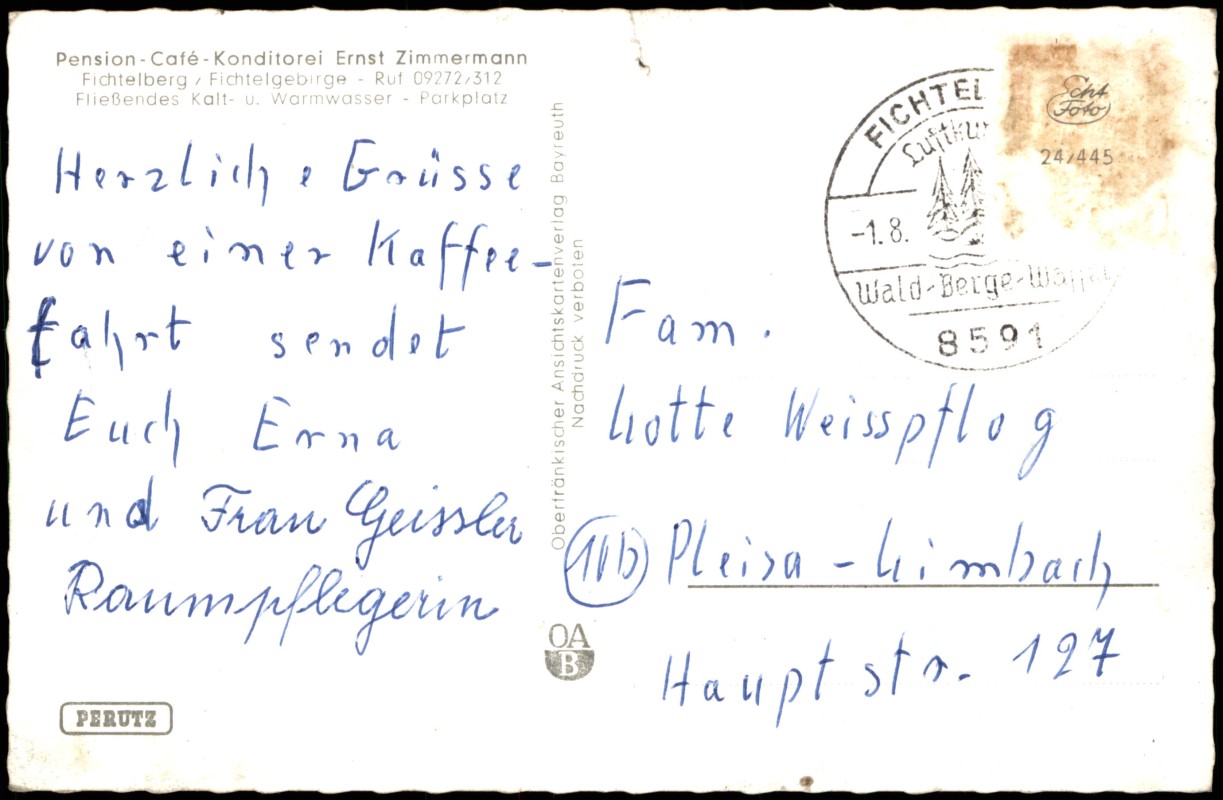 Pension-Café-Konditorei Ernst Zimmermann
Fichtelberg / Fichtelgebirge - Ruf 09272/312
Fließendes Kalt- u. Warmwasser - Parkplatz
Herzliche Grüsse
von einer Kaffee-
fahrt sendet
Euch Erna
und Frau Geissler
Raumpflegerin
PERUTZ
Oberfränkischer Ansichtskartenverlag Bayreuth
Nachdruck verboten
OA
B
FICHTEL
Luftku
-1.8.
Wald-Berge-Wasser
8591
Echt
Foto
24/445
Fam.
Lotte Weisspflog
(10b) Pleisa-Limbach
Hauptstr. 127